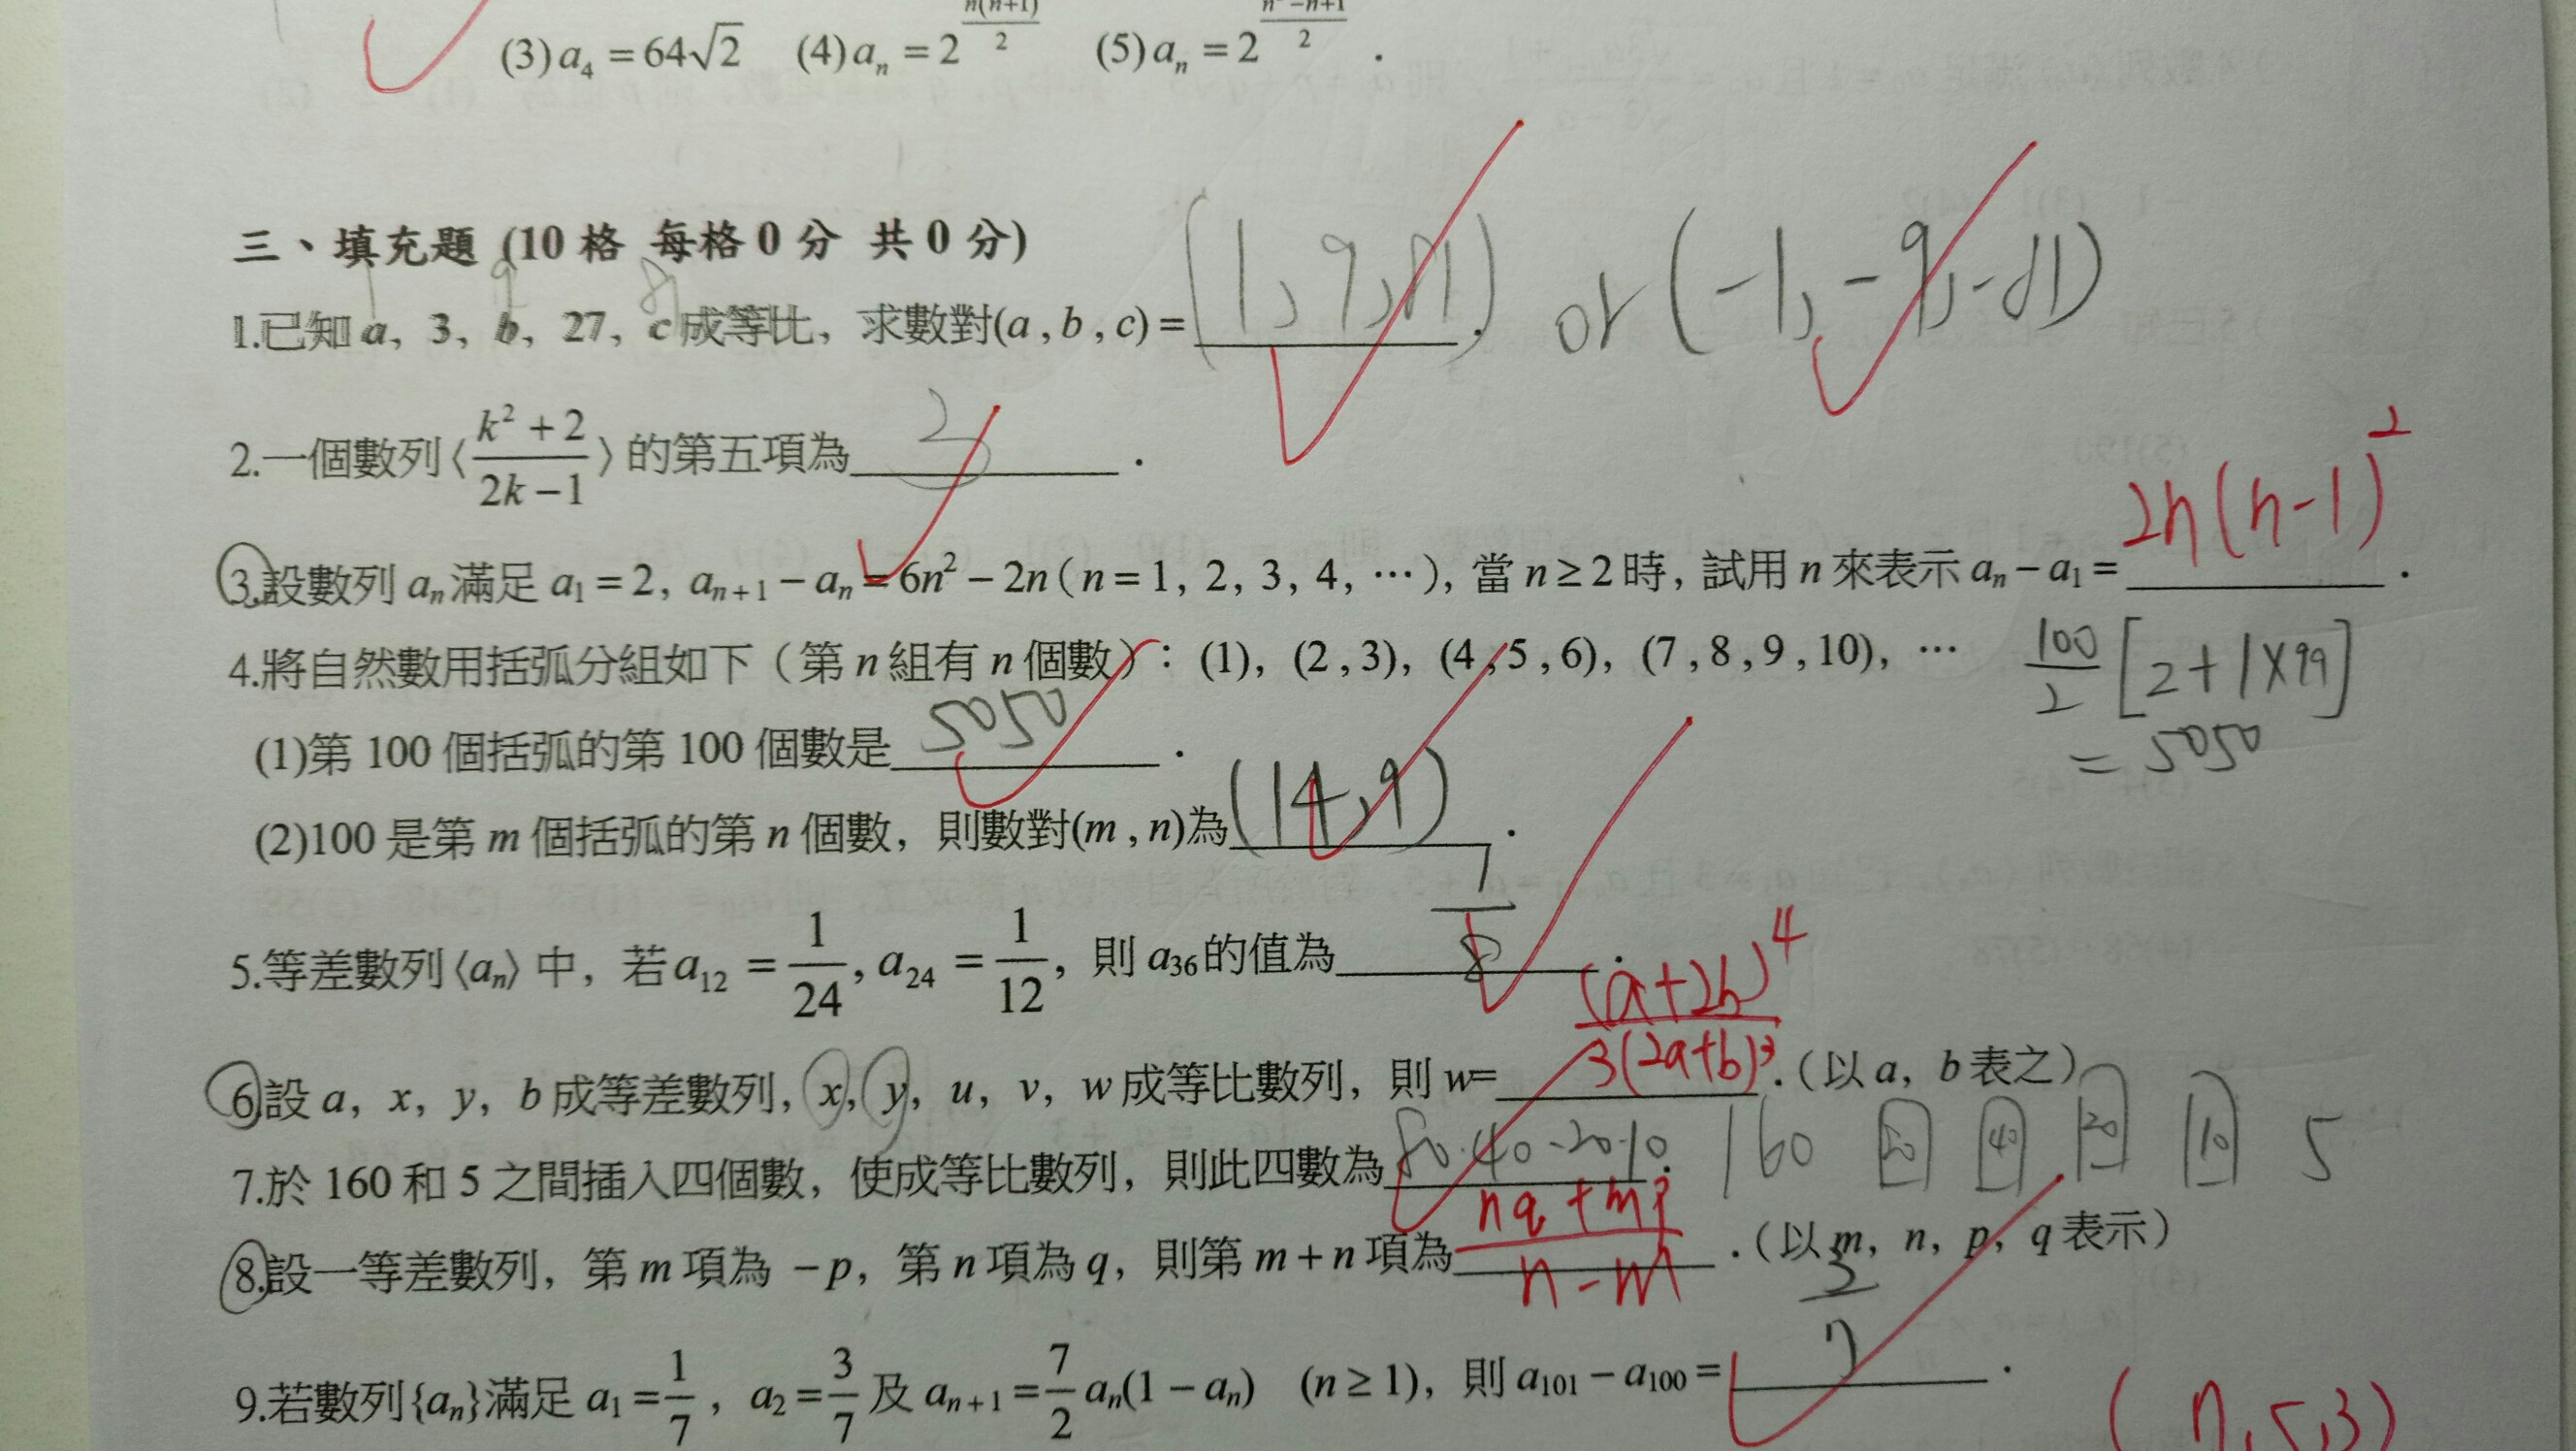 (3) a₄ = 64√2 (4) aₙ = 2^(n(n+1)/2) (5) aₙ = 2^((n²−n+1)/2) .
三、填充題 (10 格 每格 0 分 共 0 分)
1 9 81
1.已知 a, 3, b, 27, c 成等比, 求數對(a , b , c) = (1, 9, 81) . or (-1, -9, -81)
2.一個數列〈(k² + 2)/(2k − 1)〉的第五項為 3 .
3.設數列 aₙ 滿足 a₁ = 2, aₙ₊₁ − aₙ = 6n² − 2n ( n = 1, 2, 3, 4, ⋯ ), 當 n ≥ 2 時, 試用 n 來表示 aₙ − a₁ = 2n(n-1)² .
4.將自然數用括弧分組如下（第 n 組有 n 個數）: (1), (2 , 3), (4 , 5 , 6), (7 , 8 , 9 , 10), ⋯
100/2 [2+1×99]
= 5050
(1)第 100 個括弧的第 100 個數是 5050 .
(2)100 是第 m 個括弧的第 n 個數, 則數對(m , n)為 (14, 9) .
5.等差數列〈aₙ〉中, 若 a₁₂ = 1/24, a₂₄ = 1/12, 則 a₃₆ 的值為 1/8 .
6.設 a, x, y, b 成等差數列, x, y, u, v, w 成等比數列, 則 w= (a+2b)⁴/3(2a+b)³ .（以 a, b 表之）
7.於 160 和 5 之間插入四個數, 使成等比數列, 則此四數為 80.40.20.10 . 160 80 40 20 10 5
8.設一等差數列, 第 m 項為 −p, 第 n 項為 q, 則第 m + n 項為 (nq+mp)/(n-m) .（以 m, n, p, q 表示）
9.若數列{aₙ}滿足 a₁ = 1/7 , a₂ = 3/7 及 aₙ₊₁ = 7/2 aₙ(1 − aₙ) (n ≥ 1), 則 a₁₀₁ − a₁₀₀ = 3/7 .